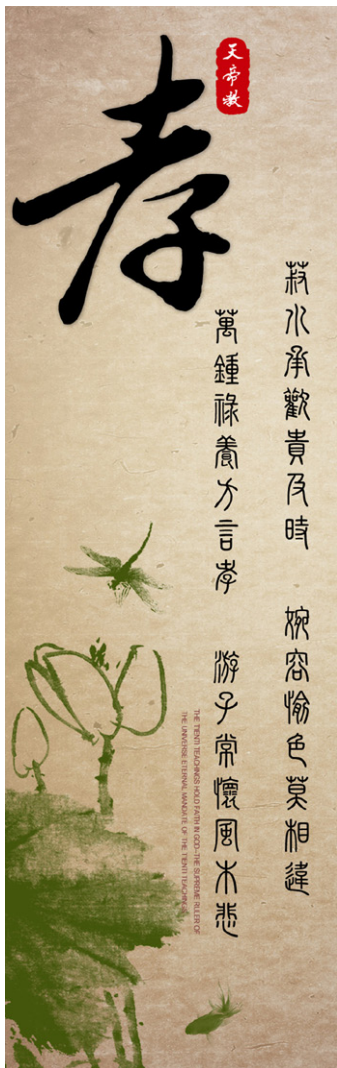 孝
天帝教
菽水承歡貴及時 婉容愉色莫相違
萬鍾祿養方言孝 游子常懷風木悲
THE TIENTI TEACHINGS HOLD FAITH IN GOD–THE SUPREME RULER OF
THE UNIVERSE ETERNAL MANDATE OF THE TIENTI TEACHINGS